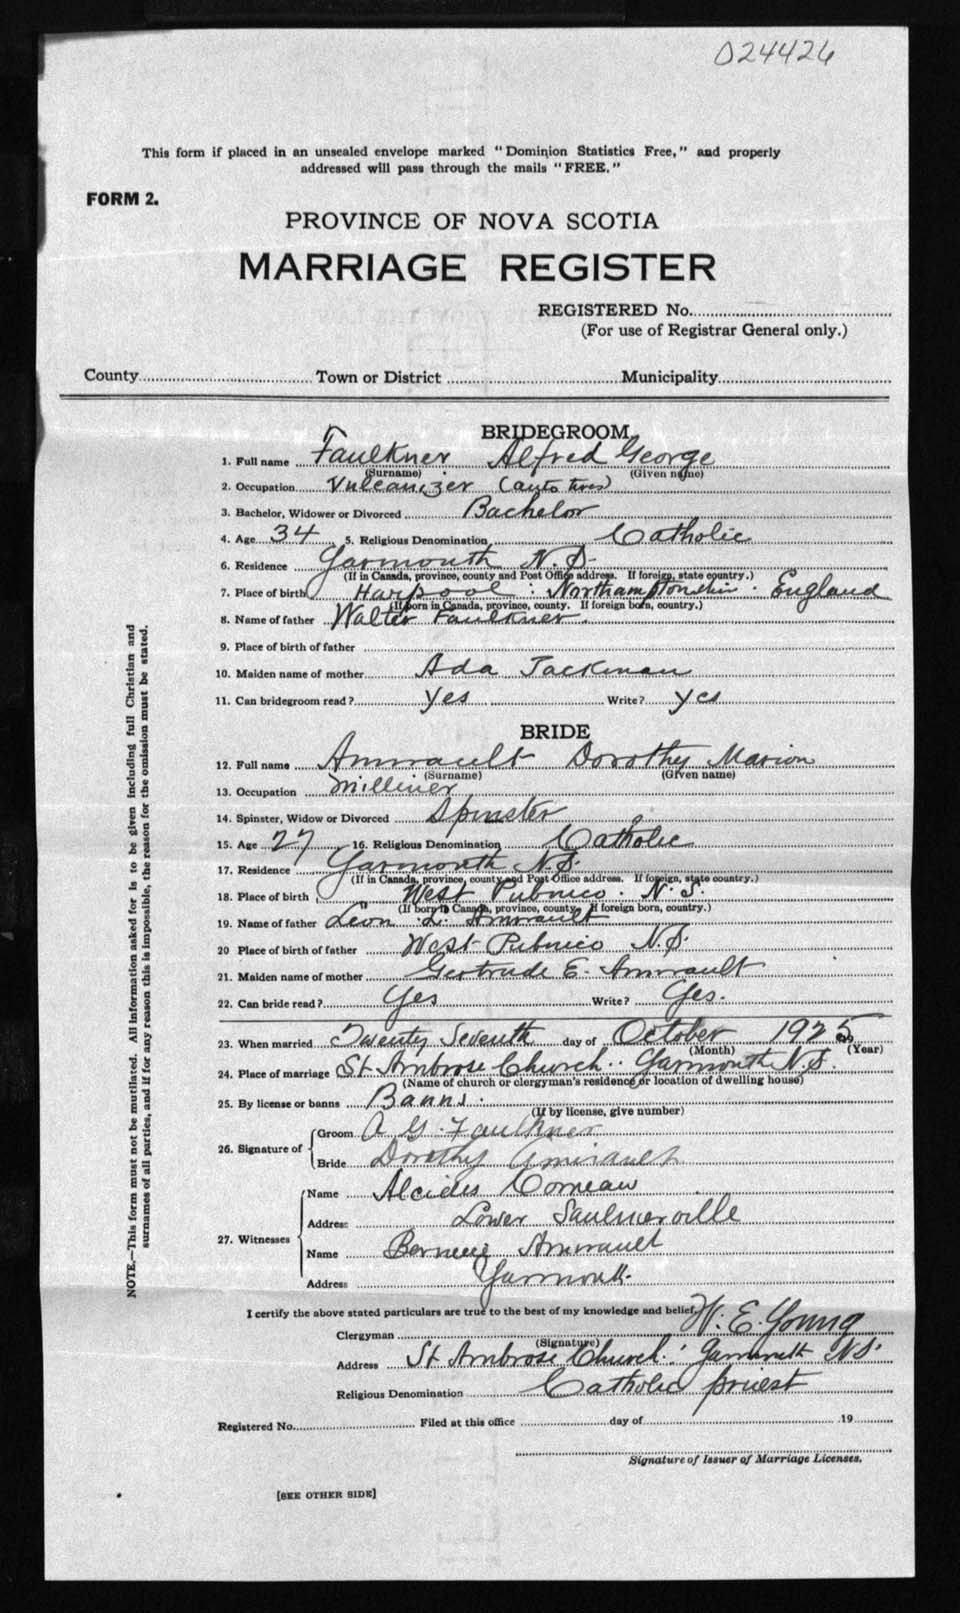 024426
This form if placed in an unsealed envelope marked "Dominion Statistics Free," and properly
addressed will pass through the mails "FREE."
FORM 2.
PROVINCE OF NOVA SCOTIA
MARRIAGE REGISTER
REGISTERED No.
(For use of Registrar General only.)
County Town or District Municipality
BRIDEGROOM
1. Full name Faulkner Alfred George
(Surname) (Given name)
2. Occupation Vulcanizer (auto tires)
3. Bachelor, Widower or Divorced Bachelor
4. Age 34 5. Religious Denomination Catholic
6. Residence Yarmouth N.S.
(If in Canada, province, county and Post Office address. If foreign, state country.)
7. Place of birth Harpool : Northamptonshire : England
(If born in Canada, province, county. If foreign born, country.)
8. Name of father Walter Faulkner.
9. Place of birth of father
10. Maiden name of mother Ada Jackman
11. Can bridegroom read? Yes Write? Yes
BRIDE
12. Full name Amirault Dorothy Marion
(Surname) (Given name)
13. Occupation Milliner
14. Spinster, Widow or Divorced Spinster
15. Age 27 16. Religious Denomination Catholic
17. Residence Yarmouth N.S.
(If in Canada, province, county and Post Office address. If foreign, state country.)
18. Place of birth West Pubnico. N.S.
(If born in Canada, province, county. If foreign born, country.)
19. Name of father Leon L. Amirault
20 Place of birth of father West Pubnico N.S.
21. Maiden name of mother Gertrude E. Amirault
22. Can bride read? Yes Write? Yes.
23. When married Twenty Seventh day of October 1925
(Month) (Year)
24. Place of marriage St Ambrose Church. Yarmouth N.S.
(Name of church or clergyman's residence or location of dwelling house)
25. By license or banns Banns.
(If by license, give number)
26. Signature of Groom A G. Faulkner
Bride Dorothy Amirault
27. Witnesses Name Alcides Comeau
Address Lower Saulnierville
Name Bernice Amirault
Address Yarmouth.
I certify the above stated particulars are true to the best of my knowledge and belief.
Clergyman W. E. Young
(Signature)
Address St Ambrose Church: Yarmouth N.S.
Religious Denomination Catholic priest
Registered No. Filed at this office day of 19
Signature of Issuer of Marriage Licenses.
[SEE OTHER SIDE]
NOTE.—This form must not be mutilated. All information asked for is to be given including full Christian and
surnames of all parties, and if for any reason this is impossible, the reason for the omission must be stated.